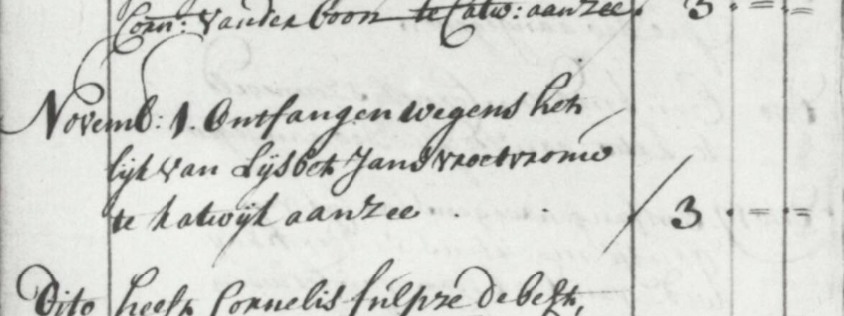 Corn: vander boon te Catw: aan Zee. 3 . = . =
Novemb: 1. Ontfangen wegens het
lijk van Lijsbet Jans vroetvrouw
te katwijk aan Zee . . 3 . = . =
Dito heeft Cornelis